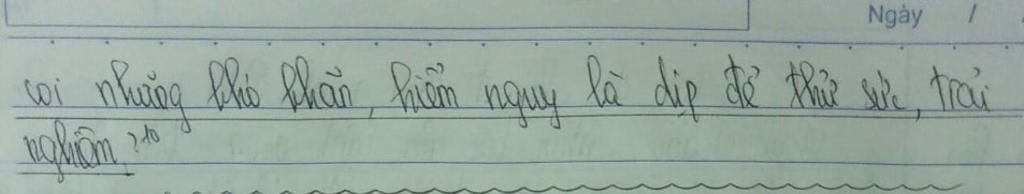 Ngày /
coi những khó khăn, hiểm nguy là dịp để thử sức, trải
nghiệm